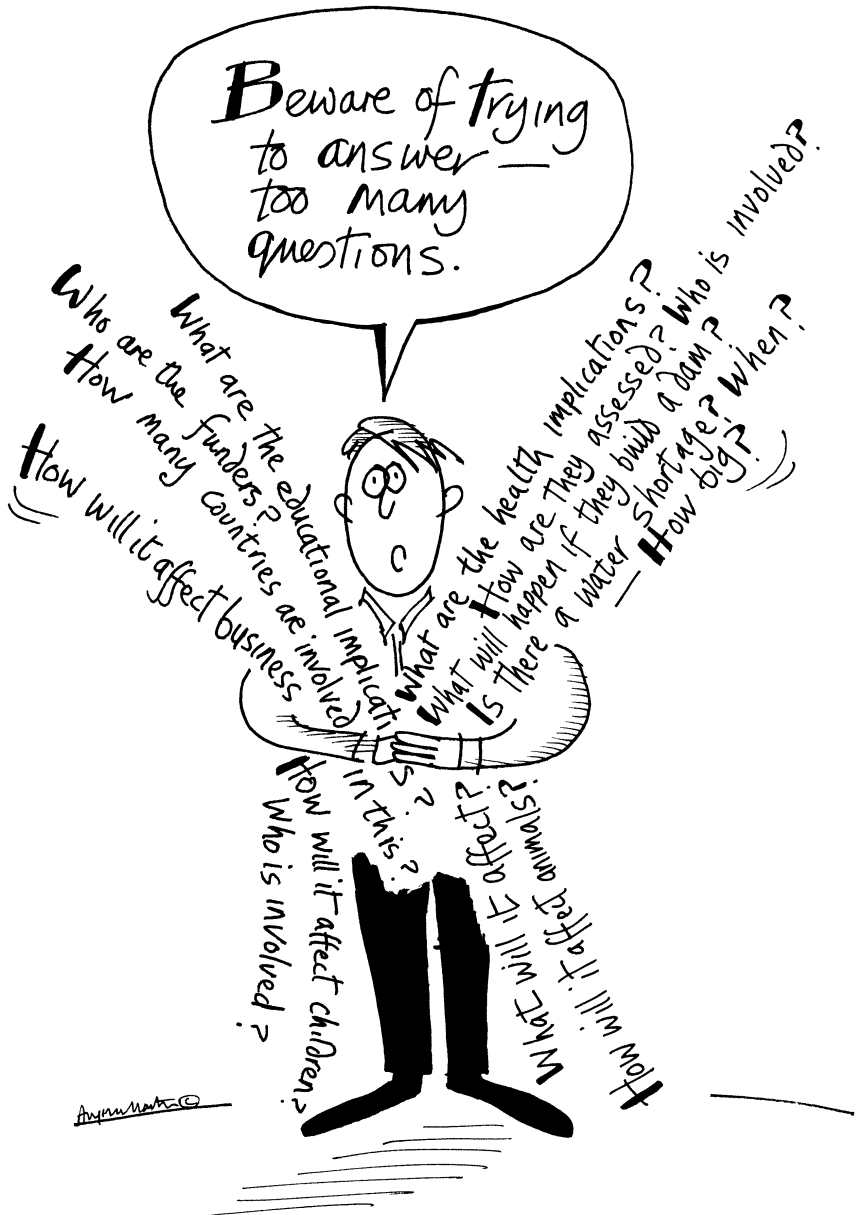 Beware of trying
to answer —
too many
questions.
What are the educational implicati s?
Who are the funders?
How many countries are involved in this?
How will it affect business
What are the health implications?
How are they assessed? Who is involved?
What will happen if they build a dam?
Is there a water shortage? When?
— How big?
How will it affect children?
Who is involved?
What will it affect?
How will it affect animals?